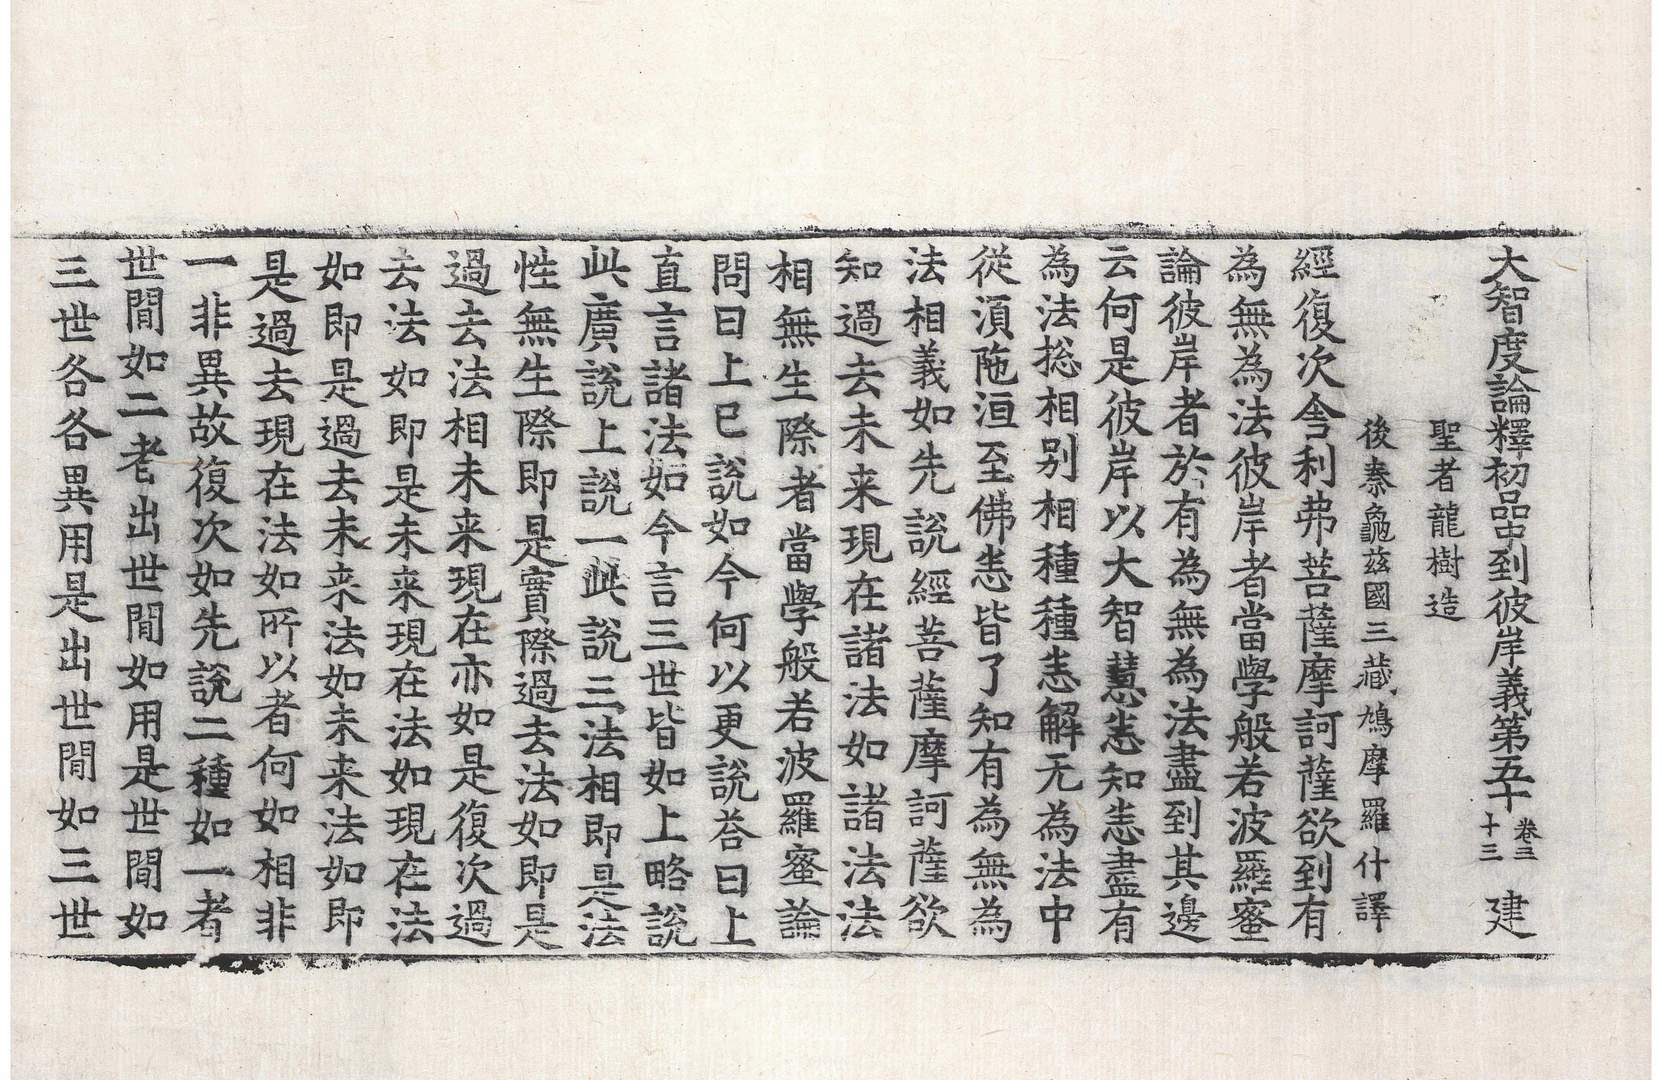 大智度論釋初品中到彼岸義第五十 卷三十三 建
聖者龍樹造
後秦龜茲國三藏鳩摩羅什譯
經復次舍利弗菩薩摩訶薩欲到有
為無為法彼岸者當學般若波羅蜜
論彼岸者於有為無為法盡到其邊
云何是彼岸以大智慧悉知悉盡有
為法捴相別相種種悉解无為法中
從湏陁洹至佛悉皆了知有為無為
法相義如先說經菩薩摩訶薩欲
知過去未来現在諸法如諸法法
相無生際者當學般若波羅蜜論
問曰上已說如今何以更說荅曰上
直言諸法如今言三世皆如上略說
此廣說上說一此說三法相即是法
性無生際即是實際過去法如即是
過去法相未来現在亦如是復次過
去法如即是未来現在法如現在法
如即是過去未来法如未来法如即
是過去現在法如所以者何如相非
一非異故復次如先說二種如一者
世間如二者出世間如用是世間如
三世各各異用是出世間如三世